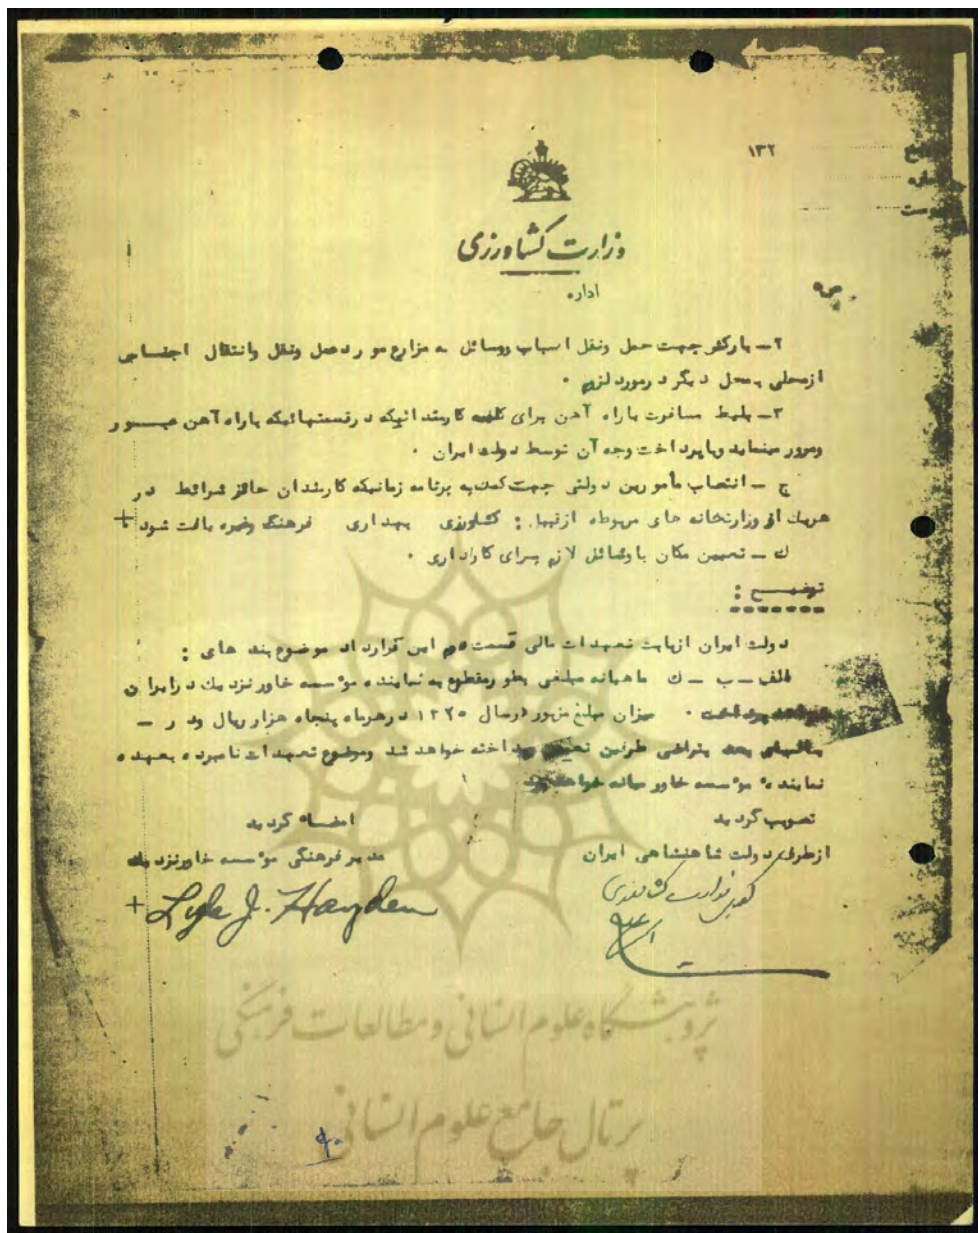 ۱۳۲
وزارت کشاورزی
اداره
۲ــ بارکش جهت حمل ونقل اسباب ووسائل به مزارع مورد عمل ونقل وانتقال اجناس
ازمحلی بمحل دیگر درمورد لزوم ۰
۳ــ بلیط مسافرت باراه آهن برای کلیه کارمندانیکه درقسمتهائیکه باراه آهن عبور
ومرور مینماید ویاپرداخت وجه آن توسط دولت ایران ۰
ج ــ انتصاب مأمورین دولتی جهت کمک به برنامه زمانیکه کارمندان حائز شرائط در
هریک از وزارتخانه های مربوطه ازقبیل : کشاورزی بهداری فرهنگ وغیره یافت شود
ک ــ تعیین مکان باوسائل لازم برای کاراداری ۰
توضیح :
دولت ایران ازبابت تعهدات مالی قسمت دوم این قرارداد موضوع بند های :
الف ــ ب ــ ک ماهیانه مبلغی بطور مقطوع به نماینده مؤسسه خاور نزدیک درایران
خواهد پرداخت ۰ میزان مبلغ مزبور درسال ۱۳۲۵ درهرماه پنجاه هزار ریال ودر ــ
سالهای بعد بتراضی طرفین تعیین پرداخته خواهد شد وموضوع تعهدات نامبرده بعهده
نماینده مؤسسه خاور میانه خواهد بود
تصویب گردید
امضاء گردید
ازطرف دولت شاهنشاهی ایران
مدیر فرهنگی مؤسسه خاورنزدیک
وزارت کشاورزی
Lyle J. Hayden
پژوهشگاه علوم انسانی و مطالعات فرهنگی
پرتال جامع علوم انسانی